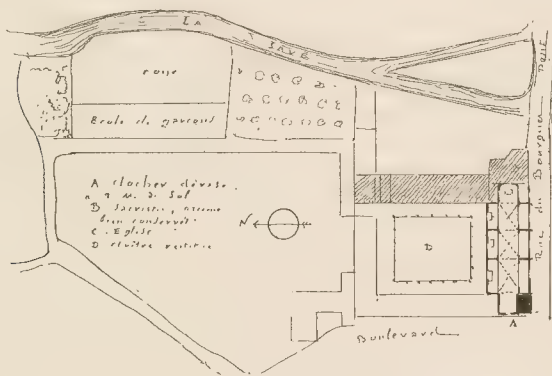 LA SAVE
École de garçons
A clocher dérasé.
à 9 M. du Sol
B Sacristie, ancienne
bien conservée
C. Église
D cloître
N
D
C
Rue du Bourguet
Boulevard
A